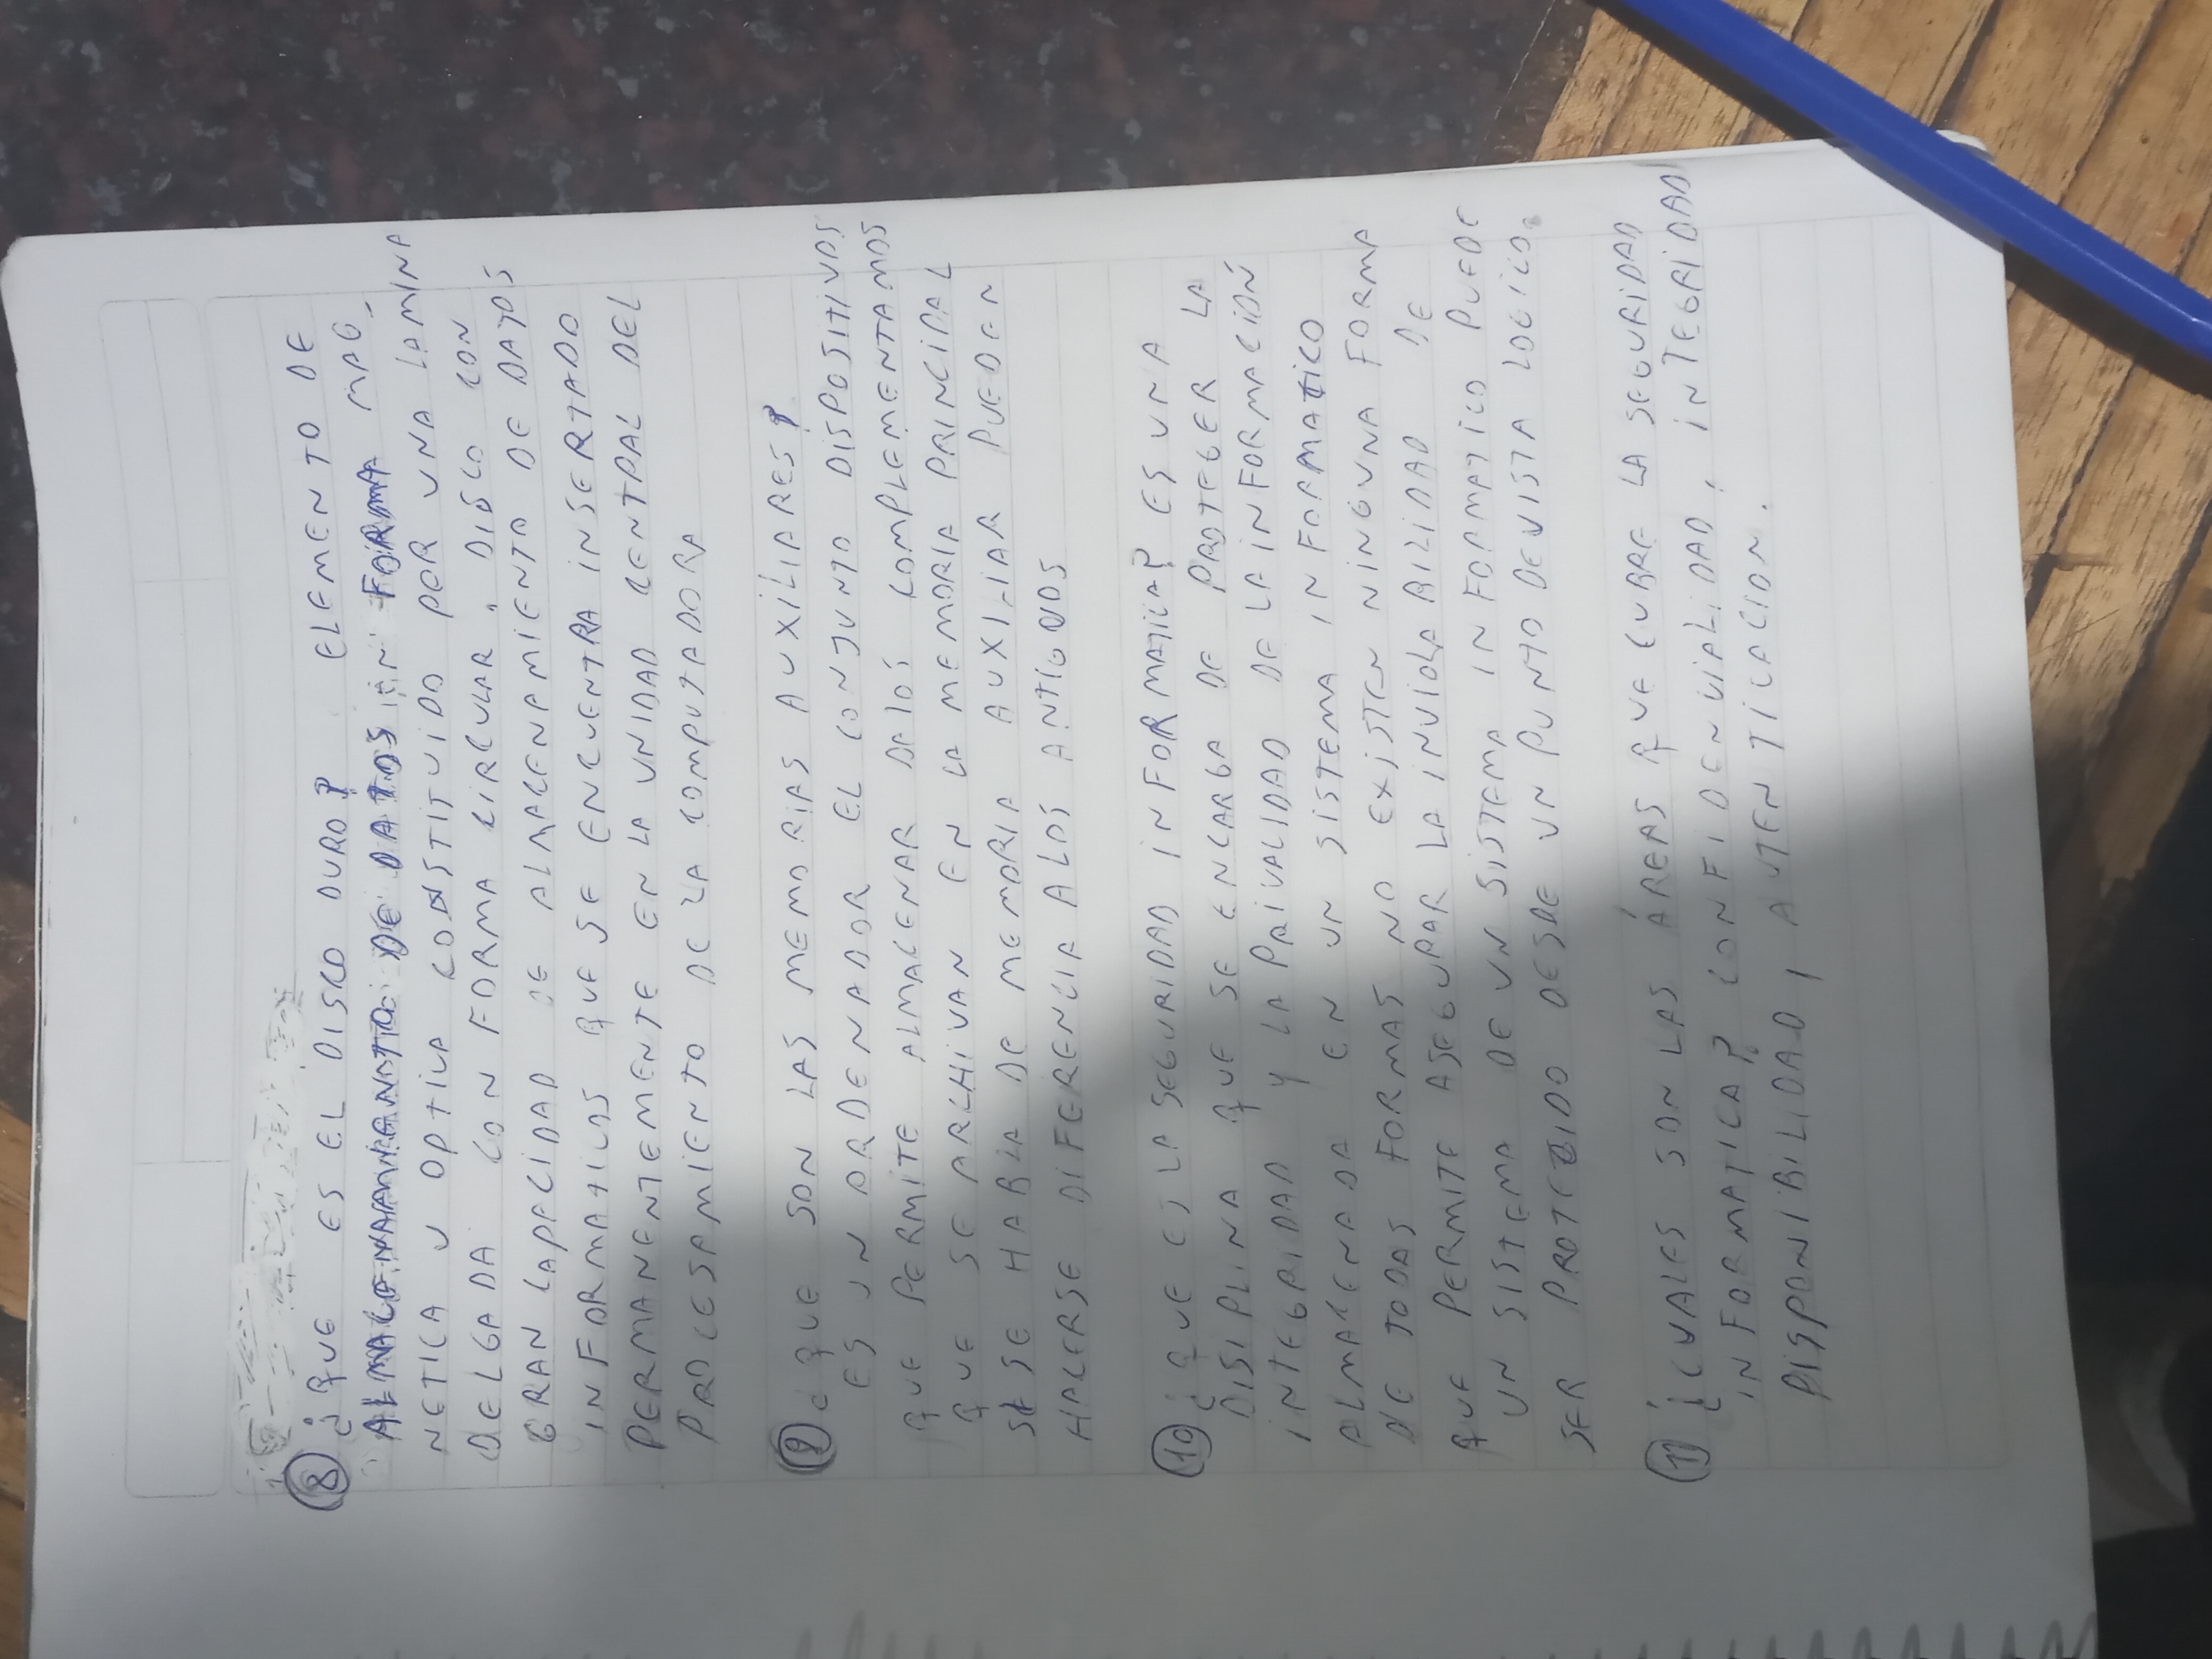 ⑧ ¿QUE ES EL DISCO DURO? ELEMENTO DE
ALMACENAMIENTO DE DATOS EN FORMA MAG-
NETICA U OPTICA CONSTITUIDO PER UNA LAMINA
DELGADA CON FORMA CIRCULAR. DISCO CON
GRAN CAPACIDAD DE ALMACENAMIENTO DE DATOS
INFORMATICOS QUE SE ENCUENTRA INSERTADO
PERMANENTEMENTE EN LA UNIDAD CENTRAL DEL
PROCESAMIENTO DE LA COMPUTADORA
⑨ ¿QUE SON LAS MEMORIAS AUXILIARES?
ES UN ORDENADOR EL CONJUNTO DISPOSITIVOS
QUE PERMITE ALMACENAR DATOS COMPLEMENTAMOS
QUE SE ARCHIVAN EN LA MEMORIA PRINCIPAL
SI SE HABLA DE MEMORIA AUXILIAR PUEDEN
HACERSE DIFERENCIA A LOS ANTIGUOS
⑩ ¿QUE ES LA SEGURIDAD INFORMATICA? ES UNA
DISIPLINA QUE SE ENCARGA DE PROTEGER LA
INTEGRIDAD Y LA PRIVALIDAD DE LA INFORMACIÓN
ALMACENADA EN UN SISTEMA INFORMATICO
DE TODAS FORMAS NO EXISTEN NINGUNA FORMA
QUE PERMITE ASEGURAR LA INVIOLABILIDAD DE
UN SISTEMA DE UN SISTEMA INFORMATICO PUEDE
SER PROTEGIDO DESDE UN PUNTO DE VISTA LOGICO.
⑪ ¿CUALES SON LAS ÁREAS QUE CUBRE LA SEGURIDAD
INFORMATICA? CONFIDENCIALIDAD, INTEGRIDAD
DISPONIBILIDAD, AUTENTICACION.